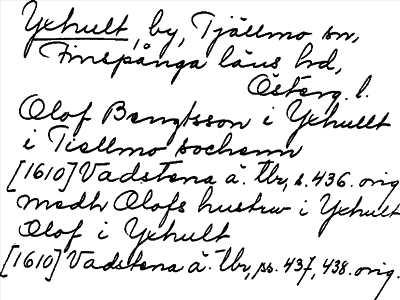 Yxhult, by, Tjällmo sn,
Finspånga läns hd,
Österg. l.
Olof Bengtsson i Yxhullt
i Tiellmo sochenn
[1610] Vadstena ä. tbr, s. 436. orig
medh Olofs hustrw i Yxhult
Olof i Yxhult
[1610] Vadstena ä. tbr, ss. 437, 438. orig.